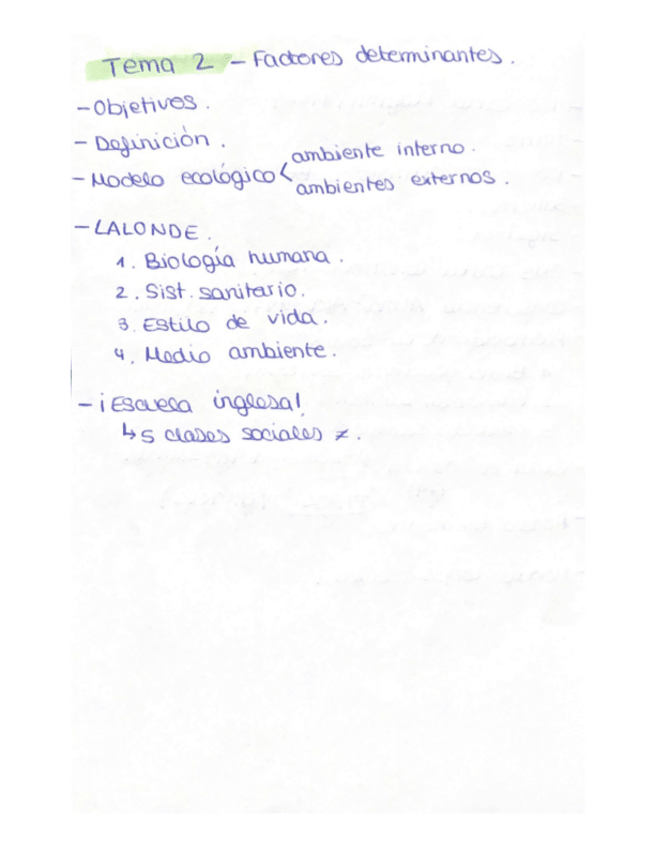 Tema 2 - Factores determinantes.
- Objetivos.
- Definición.
- Modelo ecológico < ambiente interno.
ambientes externos.
- LALONDE.
1. Biología humana.
2. Sist. sanitario.
3. Estilo de vida.
4. Medio ambiente.
- ¡Escuela inglesa!
↳ 5 clases sociales ≠.